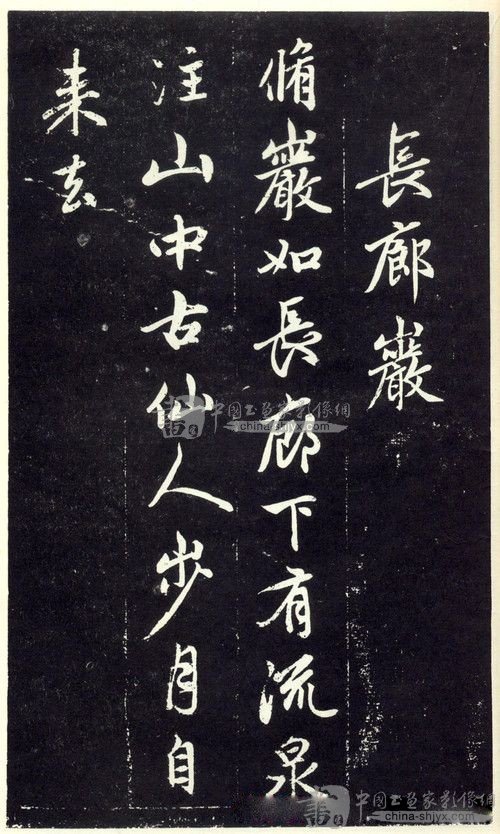 長廊巖
脩巖如長廊下有流泉
注山中古仙人步月自
来去
中国书画家影像網
china-shjyx.com
中国书画家影像網
china-shjyx.com